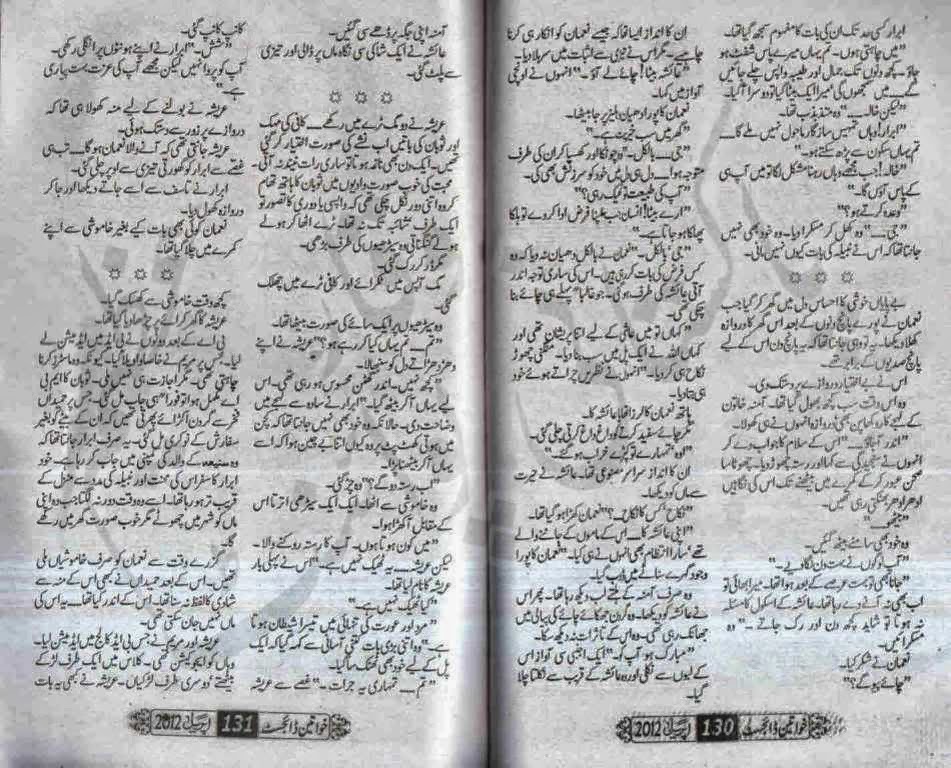 ابرار کسی حد تک ان کی بات کا مفہوم سمجھ گیا تھا۔
"میں چاہتی ہوں۔ تم یہاں میرے پاس شفٹ ہو
جاؤ۔ کچھ دنوں تک جمل اور طیبہ واپس چلے جائیں
گے۔ میں سمجھوں گی میرا ایک بیٹا گیا تو دوسرا آ گیا۔
"لیکن خالہ۔" وہ متذبذب تھا۔
"ابرار! وہاں تمہیں سازگار ماحول نہیں ملے گا۔
تم یہاں سکون سے پڑھ سکتے ہو۔"
"خالہ! جب مجھے وہاں رہنا مشکل لگا تو میں آپ ہی
کے پاس آؤں گا۔"
"وعدہ کرتے ہو؟"
"جی۔" وہ کھل کر مسکرا دیا۔ وہ خود بھی نہیں
جانتا تھا کہ اس نے نبیلہ کی بات کیوں نہیں مانی۔
بے پایاں خوشی کا احساس دل میں گھر کر گیا جب
نعمان نے پورے پانچ دنوں کے بعد اس گھر کا دروازہ
کھلا دیکھا۔ یہ تو وہی جانتا تھا کہ یہ پانچ دن اس کے لیے
پانچ صدیوں کے برابر تھے۔
اس نے بے اختیار دروازے پر دستک دی۔
وہ اس وقت سب کچھ بھول گیا تھا۔ آمنہ خاتون
کے لیے دروازہ انہوں نے ہی کھولا۔
"اندر آ جاؤ۔" اس کے سلام کا جواب دے کر
انہوں نے سنجیدگی سے کہا اور رستہ چھوڑ دیا۔ چھوٹا سا
صحن عبور کر کے کمرے میں بیٹھنے تک اس کی نگاہیں
ادھر ادھر بھٹکتی رہی تھیں۔
"بیٹھو۔"
وہ خود بھی سامنے بیٹھ گئیں۔
"آپ لوگوں نے بہت دن لگا دیے۔"
"جانا بھی تو بہت عرصے کے بعد ہوا تھا۔ میرا بھائی تو
اب بھی نہ آنے دے رہا تھا۔ عائشہ کے اسکول کا مسئلہ
نہ ہوتا تو شاید کچھ دن اور رک جاتے۔" وہ
مسکرائیں۔
نعمان نے شکر کیا۔
"چائے پیو گے؟"
ان کا انداز ایسا تھا کہ جیسے نعمان کو انکار ہی کرنا
چاہیے۔ مگر اس نے تیزی سے اثبات میں سر ہلا دیا۔
"عائشہ بیٹا! چائے لے آؤ۔" انہوں نے اونچی
آواز میں کہا۔
نعمان کا پورا دھیان دہلیز پر جا بیٹھا۔
"گھر میں سب خیریت ہے؟"
"جی۔ بالکل۔" وہ چونکا اور کھسیا کر ان کی طرف
متوجہ ہوا۔ دل ہی دل میں خود کو سرزنش بھی کی۔
"آپ کی طبیعت تو ٹھیک رہی؟"
"ارے بیٹا! انسان جب اپنا فرض ادا کر دے تو ہلکا
پھلکا ہو جاتا ہے۔"
"جی، بالکل۔" نعمان نے بالکل دھیان نہ دیا کہ وہ
کس فرض کی بات کر رہی ہیں۔ اس کی ساری توجہ اندر
آتی عائشہ کی طرف ہو گئی۔ جو غالباً پہلے ہی چائے بنا
چکی تھی۔
"کہاں تو میں عاشی کے لیے اتنا پریشان تھی اور
کہاں اللہ نے ایک پل میں سب بنا دیا۔ منگنی چھوڑ
نکاح ہی کر دیا۔" انہوں نے نظریں چراتے ہوئے خود
ہی بتا دیا۔
ہاتھ نعمان کا لرزا تھا یا عائشہ کا۔
مگر چائے سفید کرتے کو داغ داغ کرتی چلی گئی۔
"اوہ تمہارے تو کپڑے خراب ہو گئے۔"
ان کا انداز سراسر مصنوعی تھا۔ عائشہ نے حیرت
سے ماں کو دیکھا۔
"نکاح، کس کا نکاح۔؟" نعمان کھڑا ہو گیا تھا۔
"اپنی عائشہ کا۔ اس کے ماموں کے جاننے والے
تھے، سارا انتظام بھی انہوں نے ہی کیا۔" نعمان کا پورا
وجود گہرے سناٹے میں ڈوب گیا۔
وہ صرف آمنہ کے ہلتے لب دیکھ رہا تھا۔ پھر اس
نے عائشہ کو دیکھا۔ وہ گردن جھکائے چائے کی پیالی میں
جھانک رہی تھی۔ وہ اس کے تاثرات نہ دیکھ سکا۔
"مبارک ہو آپ کو۔" ایک اجنبی سی آواز اس
کے لبوں سے نکلی اور وہ عائشہ کے قریب سے نکلتا چلا
گیا۔
خواتین ڈائجسٹ 130 اپریل 2012
آمنہ اپنی جگہ پر ڈھے سی گئیں۔
عائشہ نے ایک شاکی سی نگاہ ماں پر ڈالی اور تیزی
سے پلٹ گئی۔
عریشہ نے دو مگ ٹرے میں رکھے۔ کافی کی مہک
اور ثوبان کی باتیں اب نشے کی صورت اختیار کر گئی
تھیں۔ ایک دن بھی ناغہ ہوتا تو ساری رات نیند نہ آتی۔
محبت کی خوب صورت وادیوں میں ثوبان کا ہاتھ تھام
کر وہ اتنی دور نکل چکی تھی کہ واپسی یا دوری کا تصور تو
ایک طرف شائبہ تک نہ تھا۔ ٹرے اٹھا کر ہولے
ہولے گنگناتی وہ سیڑھیوں کی طرف بڑھی۔
مگر ڈر کر رک گئی۔
مگ آپس میں ٹکرائے اور کافی ٹرے میں چھلک
گئی۔
وہ سیڑھیوں پر ایک سائے کی صورت بیٹھا تھا۔
"تم۔ تم یہاں کیا کر رہے ہو؟" عریشہ نے اپنے
دھڑ دھڑاتے دل کو سنبھالا۔
"کچھ نہیں۔ اندر گھٹن محسوس ہو رہی تھی۔ اس
لیے یہاں آ کر بیٹھ گیا۔" ابرار نے سادہ سے لہجے میں
وضاحت دی۔ حالانکہ وہ خود بھی نہیں جانتا تھا کہ کچن
میں ہوتی کھٹ پٹ پر وہ کیوں اتنا بے چین ہوا کہ اسے
یہاں آ کر بیٹھنا پڑا۔
"اب رستہ دو گے؟" وہ چڑ گئی۔
وہ خاموشی سے اٹھا۔ ایک ایک سیڑھی اترتا اس
کے مقابل آ کھڑا ہوا۔
"میں کون ہوتا ہوں۔ آپ کا رستہ روکنے والا۔
لیکن عریشہ۔ یہ ٹھیک نہیں ہے۔" اس نے پہلی بار
عریشہ کا نام لیا تھا۔
"کیا ٹھیک نہیں ہے۔"
"مرد اور عورت کی تنہائی میں تیسرا شیطان ہوتا
ہے۔" وہ اتنی بڑی بات کتنی آسانی سے کہہ گیا کہ ایک
پل کے لیے خود بھی ٹھٹک سا گیا۔
"تم۔ تمہاری یہ جرات۔" غصے سے عریشہ
کانپ کانپ گئی۔
"شش۔" ابرار نے اپنے ہونٹوں پر انگلی رکھی۔
آپ کو پروا نہیں لیکن مجھے آپ کی عزت بہت پیاری
ہے۔"
عریشہ نے بولنے کے لیے منہ کھولا ہی تھا کہ
دروازے پر زور سے دستک ہوئی۔
عریشہ جانتی تھی کہ آنے والا نعمان ہو گا۔ تب ہی
غصے سے ابرار کو گھورتی تیزی سے اوپر چلی گئی۔
ابرار نے تاسف سے اسے جاتے دیکھا اور جا کر
دروازہ کھول دیا۔
نعمان کوئی بھی بات کیے بغیر خاموشی سے اپنے
کمرے میں چلا گیا تھا۔
کچھ وقت خاموشی سے کھسک گیا۔
عریشہ کا گھر کرائے پر چڑھا دیا گیا تھا۔
بی اے کے بعد دونوں نے بی ایڈ میں ایڈمیشن لے
لیا۔ جس پر مریم نے خاصا واویلا کیا۔ کیونکہ وہ ماسٹرز کرنا
چاہتی تھی۔ مگر اجازت ہی نہیں ملی۔ ثوبان کا ایم بی
اے مکمل ہوا تو فوراً ہی جاب مل گئی۔ جس پر حمیداں
فخر سے گردن اکڑائے پھرتی تھیں کہ ان کے بیٹے کو بغیر
سفارش کے نوکری مل گئی۔ یہ صرف ابرار جانتا تھا کہ
وہ منیعہ کے والد کی کمپنی میں جاب کر رہا ہے۔ خود
ابرار کا سفر اس کی محنت اور نبیلہ کی مدد سے منزل کے
قریب تر ہو رہا تھا۔ اسے وہ وقت دور نہ لگتا جب وہ اپنی
ماں کو شہر میں چھوٹے مگر خوب صورت گھر میں رکھے
گا۔
گزرے وقت سے نعمان کو صرف خاموشیاں ملی
تھیں۔ اس کے بعد حمیداں نے بھی اس کے منہ سے
شادی کا لفظ نہ سنا تھا۔ اس کے اندر کیا تھا۔ یہ اس کی
ماں نہیں جان سکتی تھی۔
عریشہ اور مریم نے جس بی ایڈ کالج میں ایڈمیشن لیا۔
وہاں کو ایجوکیشن تھی۔ کلاس میں ایک طرف لڑکے
بیٹھتے دوسری طرف لڑکیاں۔ عریشہ نے کبھی یہ بات
خواتین ڈائجسٹ 131 اپریل 2012